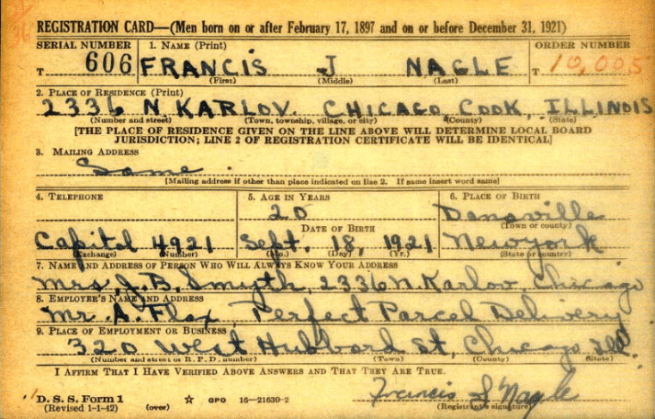 REGISTRATION CARD—(Men born on or after February 17, 1897 and on or before December 31, 1921)
SERIAL NUMBER 1. NAME (Print) ORDER NUMBER
T 606 FRANCIS J NAGLE T 10,005
(First) (Middle) (Last)
2. PLACE OF RESIDENCE (Print)
2336 N KARLOV. CHICAGO COOK, ILLINOIS
(Number and street) (Town, township, village, or city) (County) (State)
[THE PLACE OF RESIDENCE GIVEN ON THE LINE ABOVE WILL DETERMINE LOCAL BOARD
JURISDICTION; LINE 2 OF REGISTRATION CERTIFICATE WILL BE IDENTICAL]
3. MAILING ADDRESS
Same
[Mailing address if other than place indicated on line 2. If same insert word same]
4. TELEPHONE 5. AGE IN YEARS 6. PLACE OF BIRTH
20 Dansville
DATE OF BIRTH (Town or county)
Capitol 4921 Sept. 18, 1921 New york
(Exchange) (Number) (Mo.) (Day) (Yr.) (State or country)
7. NAME AND ADDRESS OF PERSON WHO WILL ALWAYS KNOW YOUR ADDRESS
Mrs J. B. Smyth, 2336 N Karlov, Chicago
8. EMPLOYER'S NAME AND ADDRESS
Mr. A. Flax, Perfect Parcel Delivery
9. PLACE OF EMPLOYMENT OR BUSINESS
320 West Hubbard St, Chicago Ill
(Number and street or R. F. D. number) (Town) (County) (State)
I AFFIRM THAT I HAVE VERIFIED ABOVE ANSWERS AND THAT THEY ARE TRUE.
D. S. S. Form 1 GPO 16—21630-2 Francis J Nagle
(Revised 1-1-42) (over) (Registrant's signature)